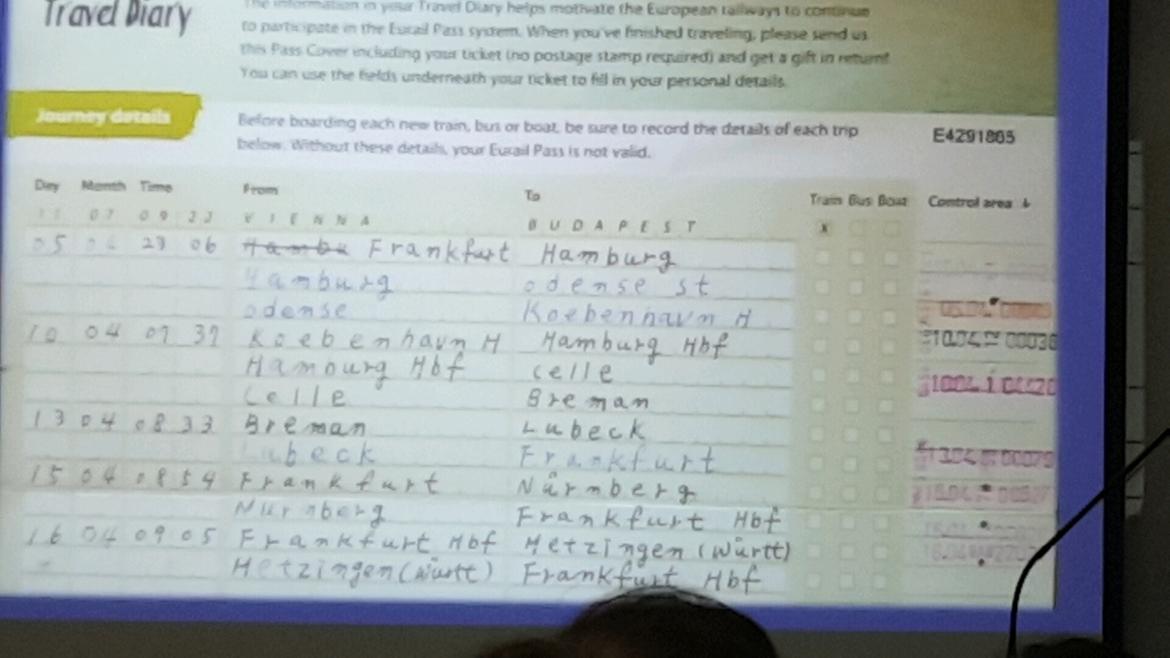 Travel Diary
The information in your Travel Diary helps motivate the European railways to continue
to participate in the Eurail Pass system. When you've finished traveling, please send us
this Pass Cover including your ticket (no postage stamp required) and get a gift in return!
You can use the fields underneath your ticket to fill in your personal details.
Journey details
Before boarding each new train, bus or boat, be sure to record the details of each trip
below. Without these details, your Eurail Pass is not valid.
E4291865
Day Month Time From To Train Bus Boat Control area ↓
11 07 09 23 VIENNA BUDAPEST X
05 04 23 06 Hambu Frankfurt Hamburg
Hamburg odense st
odense Koebenhavn H
10 04 07 37 Koebenhavn H Hamburg Hbf
Hamburg Hbf celle
Celle Breman
13 04 08 33 Breman Lubeck
Lubeck Frankfurt
15 04 08 54 Frankfurt Nürnberg
Nurnberg Frankfurt Hbf
16 04 09 05 Frankfurt Hbf Metzingen (Württ)
Metzingen (Württ) Frankfurt Hbf